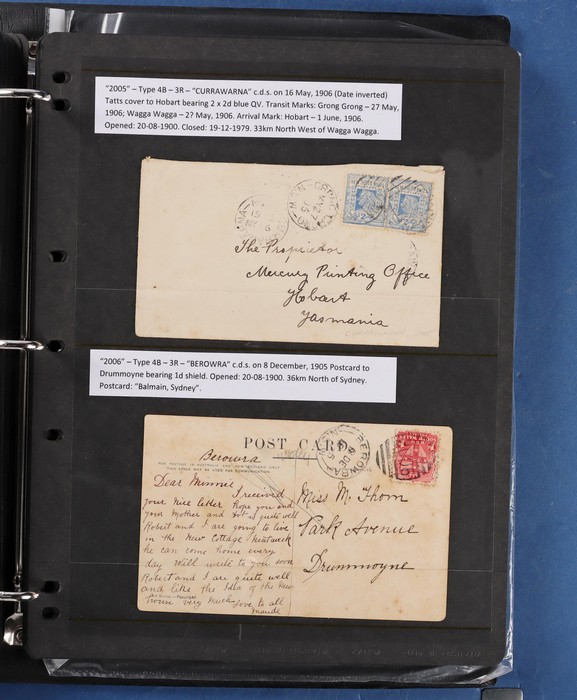 "2005" – Type 4B – 3R – "CURRAWARNA" c.d.s. on 16 May, 1906 (Date inverted)
Tatts cover to Hobart bearing 2 x 2d blue QV. Transit Marks: Grong Grong – 27 May,
1906; Wagga Wagga – 2? May, 1906. Arrival Mark: Hobart – 1 June, 1906.
Opened: 20-08-1900. Closed: 19-12-1979. 33km North West of Wagga Wagga.
The Proprietor
Mercury Printing Office
Hobart
Tasmania
"2006" – Type 4B – 3R – "BEROWRA" c.d.s. on 8 December, 1905 Postcard to
Drummoyne bearing 1d shield. Opened: 20-08-1900. 36km North of Sydney.
Postcard: "Balmain, Sydney".
POST CARD
BEROWRA
Berowra
Dear Minnie
I received
your nice letter Hope you and
your Mother and Dot is quite well
Robert and I are going to live
in the New Cottage Next week
he can come home every
day Will write to you soon
Robert and I are quite well
and like the Idea of the New
house very much Love to all
Maude
Miss M. Thom
Park Avenue
Drummoyne